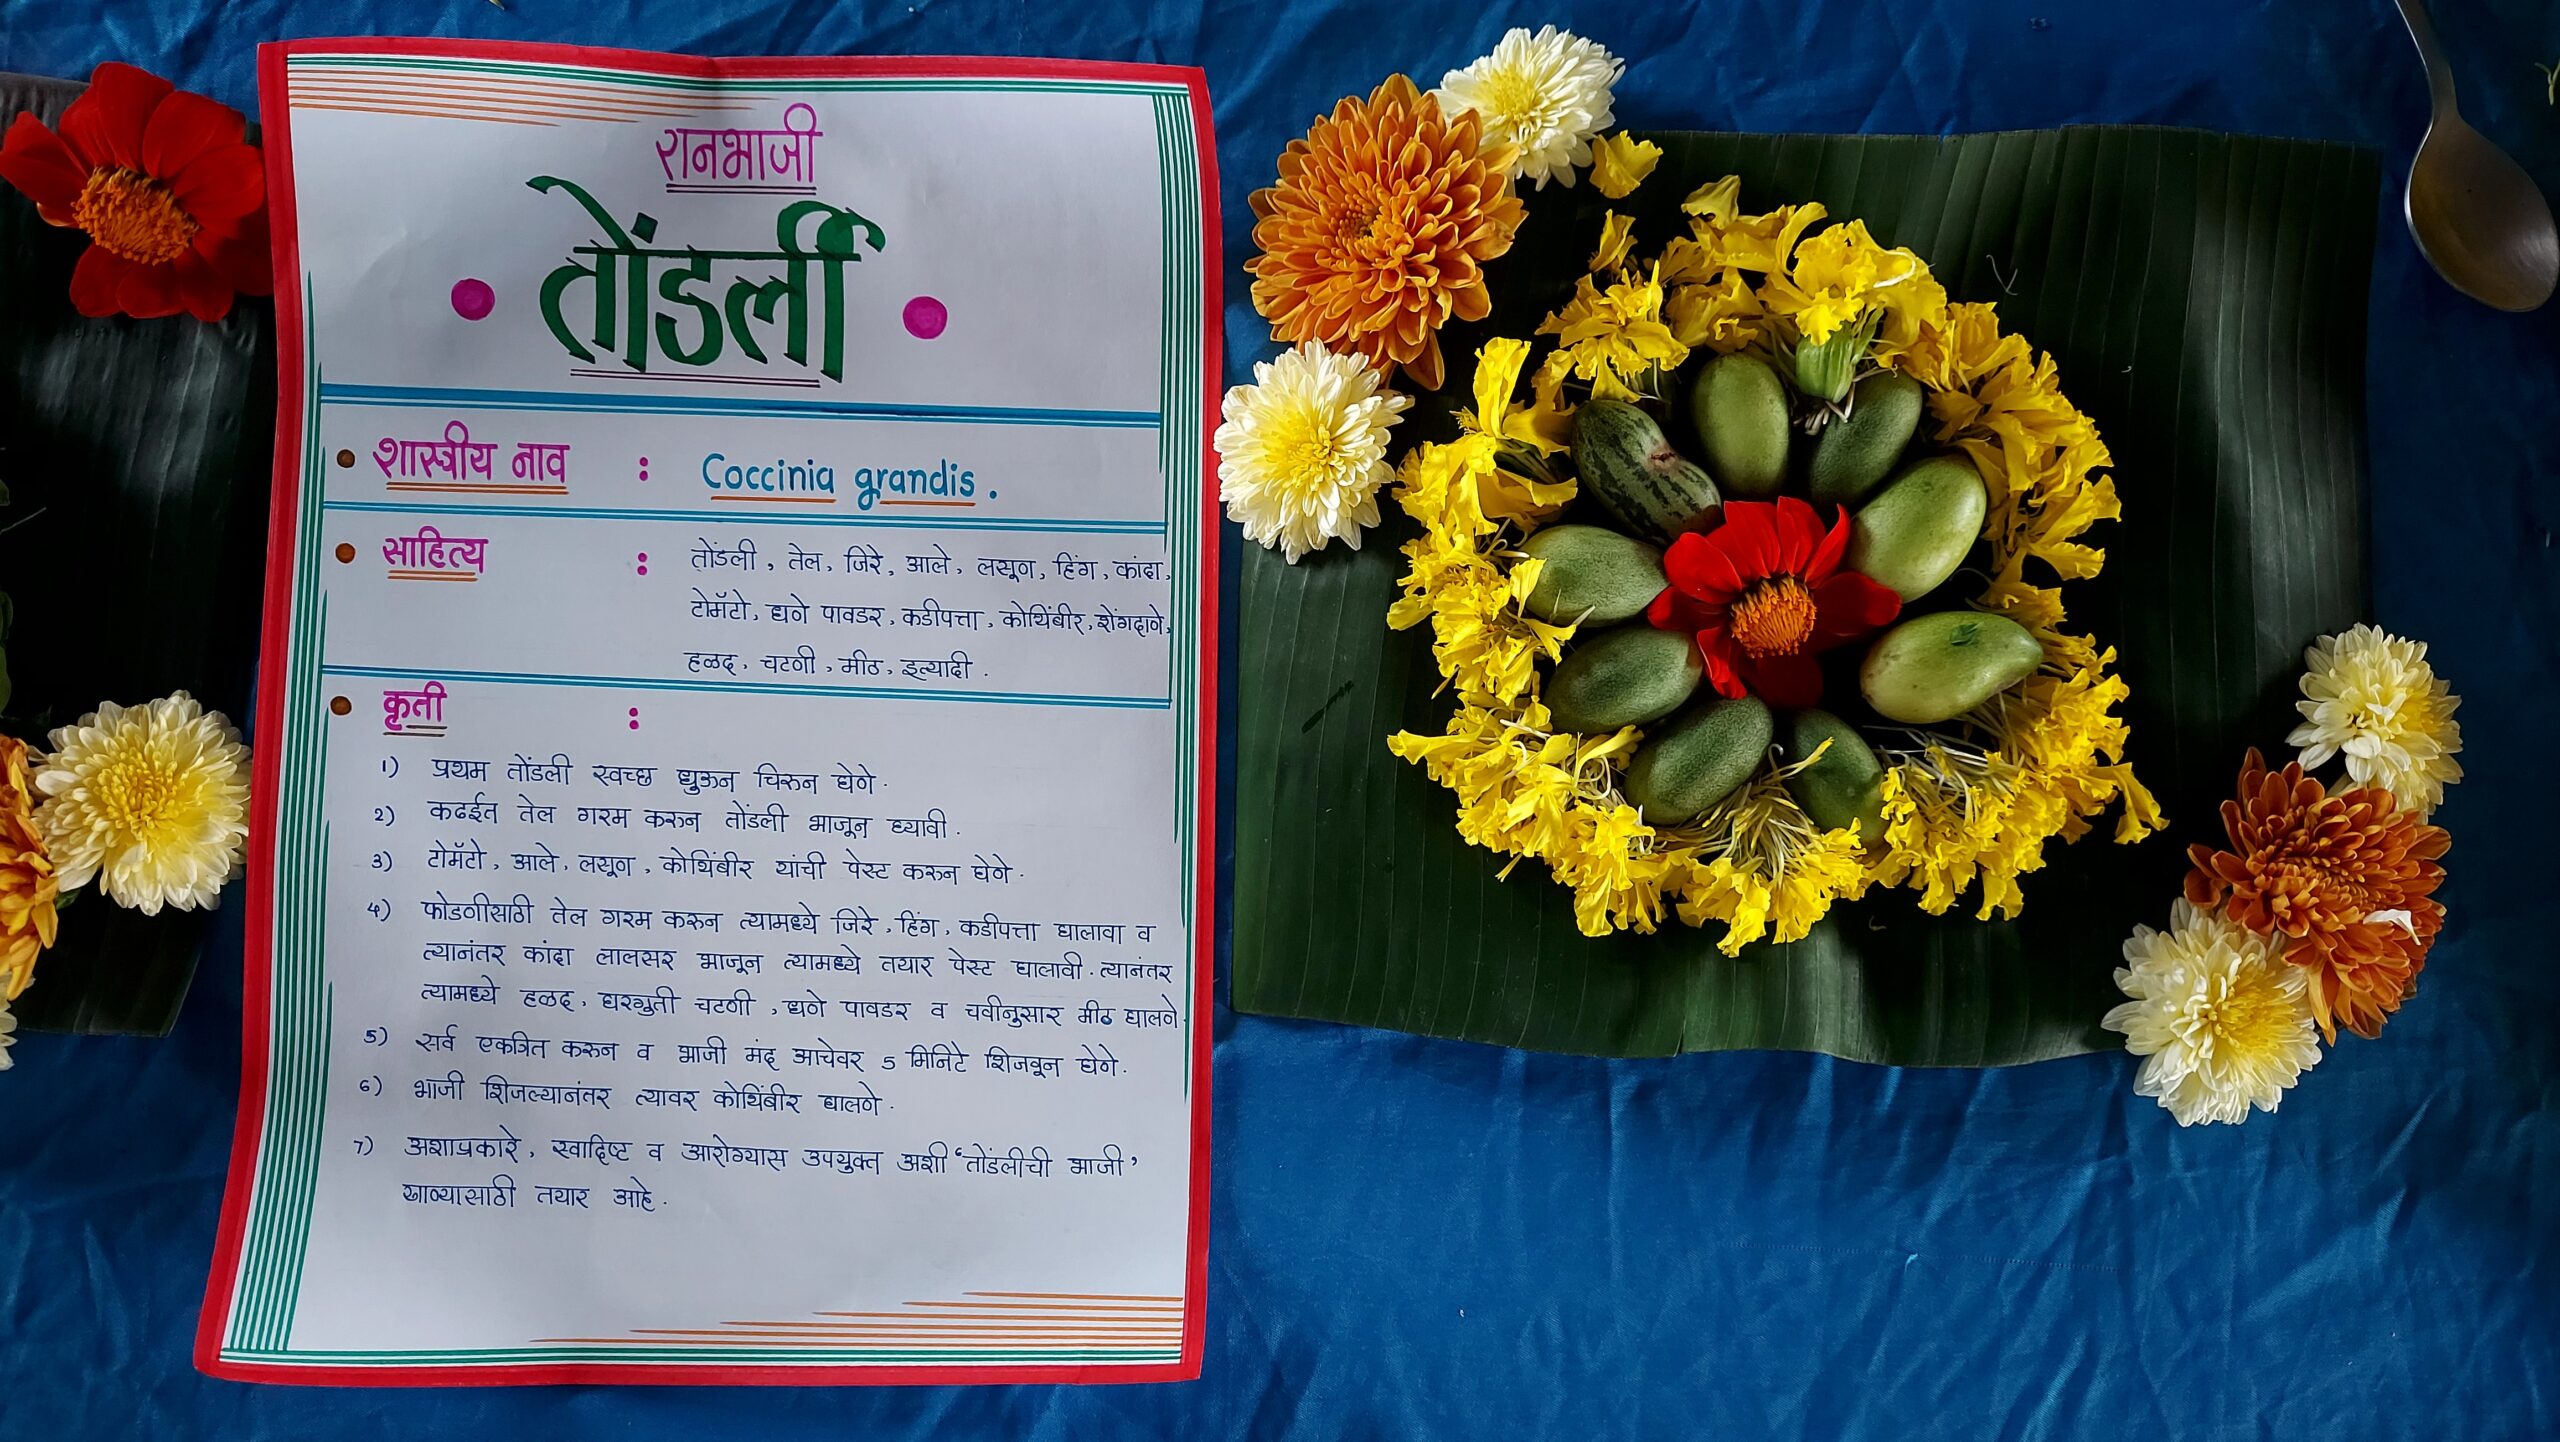 रानभाजी
तोंडली
शास्त्रीय नाव : Coccinia grandis.
साहित्य : तोंडली, तेल, जिरे, आले, लसूण, हिंग, कांदा,
टोमॅटो, धणे पावडर, कडीपत्ता, कोथिंबीर, शेंगदाणे,
हळद, चटणी, मीठ, इत्यादी.
कृती :
1) प्रथम तोंडली स्वच्छ धुऊन चिरुन घेणे.
2) कढईत तेल गरम करुन तोंडली भाजून घ्यावी.
3) टोमॅटो, आले, लसूण, कोथिंबीर यांची पेस्ट करुन घेणे.
4) फोडणीसाठी तेल गरम करुन त्यामध्ये जिरे, हिंग, कडीपत्ता घालावा व
त्यानंतर कांदा लालसर भाजून त्यामध्ये तयार पेस्ट घालावी. त्यानंतर
त्यामध्ये हळद, घरगुती चटणी, धणे पावडर व चवीनुसार मीठ घालणे.
5) सर्व एकत्रित करुन व भाजी मंद आचेवर 5 मिनिटे शिजवून घेणे.
6) भाजी शिजल्यानंतर त्यावर कोथिंबीर घालणे.
7) अशाप्रकारे, स्वादिष्ट व आरोग्यास उपयुक्त अशी ‘तोंडलीची भाजी’
खाण्यासाठी तयार आहे.